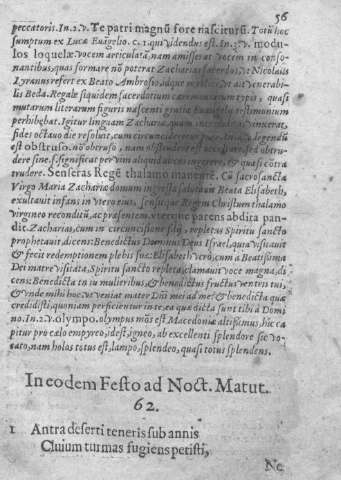 56
peccatoris. In. 2. ν. Te patri magnū fore nasciturū. Totū hoc
sumptum ex Luca Euāgelio. c. 1. qui videndus est. In. 3. ν. modu-
los loquelæ vocem articulatā, nam amiserat vocem in conso-
nantibus, quas formare nō poterat Zacharias
Lyranus refert ex Beato Ambrosio,
lis Beda. Regale siquidem sacerdotium
mutarum literarum figuris nascenti gratiæ Euāgelij testimonium
perhibebat. Igitur linguam Zachariæ, quam vinxerat,
fides octauo die resoluit, cum circuncideretur
est obstruso. nō obtuso, nam obstrudere est occultare, sed obtru-
dere sine. s. significat per vim aliquid alicui ingerere, & quasi cōtra
trudere. Senseras Regē thalamo manentē. Cū sacrosancta
Virgo Maria Zachariæ domum ingressa salutauit Beata Elisabeth,
exultauit infans in vtero eius, sensitque Regem Christum thalamo
virgineo reconditū, ac præsentem. vterque parens abdita pan-
dit. Zacharias, cum in circuncisione filij, repletus Spiritu sancto
prophetauit dicens: Benedictus Dominus Deus Israel, quia visitauit
& fecit redemptionem plebis suæ: Elisabeth verò, cum à Beatissima
Dei matre visitata, Spiritu sancto repleta, clamauit voce magna, di-
cens: Benedicta tu in mulieribus, & benedictus fructus ventris tui,
& vnde mihi hoc vt veniat mater Dñi mei ad me? & benedicta quæ
credidisti, quoniam perficientur in te, ea quæ dicta sunt tibi à Domi
no. In. 2. ν. olympo. olympus mōs est Macedoniæ altissimus, hic ca
pitur pro cælo empyreo, idest, igneo, ab excellenti splendore sic vo-
cato, nam holos totus est, lampo, splendeo, quasi totus splendens.
In eodem Festo ad Noct. Matut.
62.
1 Antra deserti teneris sub annis
Ciuium turmas fugiens petisti,
Ne